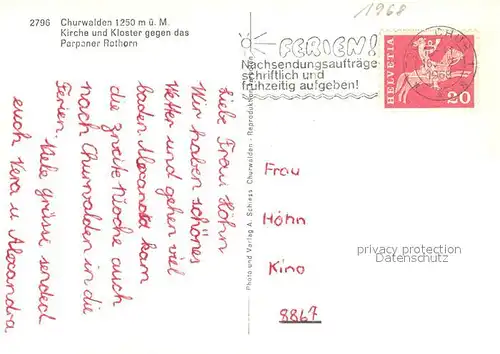 2796 Churwalden 1250 m ü. M.
Kirche und Kloster gegen das
Parpaner Rothorn
1968
FERIEN!
Nachsendungsaufträge
schriftlich und
frühzeitig aufgeben!
CHUR 1
1968
HELVETIA
20
Liebe Frau Höhn
Wir haben schönes
Wetter und gehen viel
baden. Alexandra kam
die zweite Woche auch
nach Churwalden in die
Ferien.
Viele grüsse sended
euch Vera u Alexandra
Photo und Verlag A. Schiess Churwalden - Reproduktion
Frau
Höhn
Kino
8867
privacy protection
oldthing.com